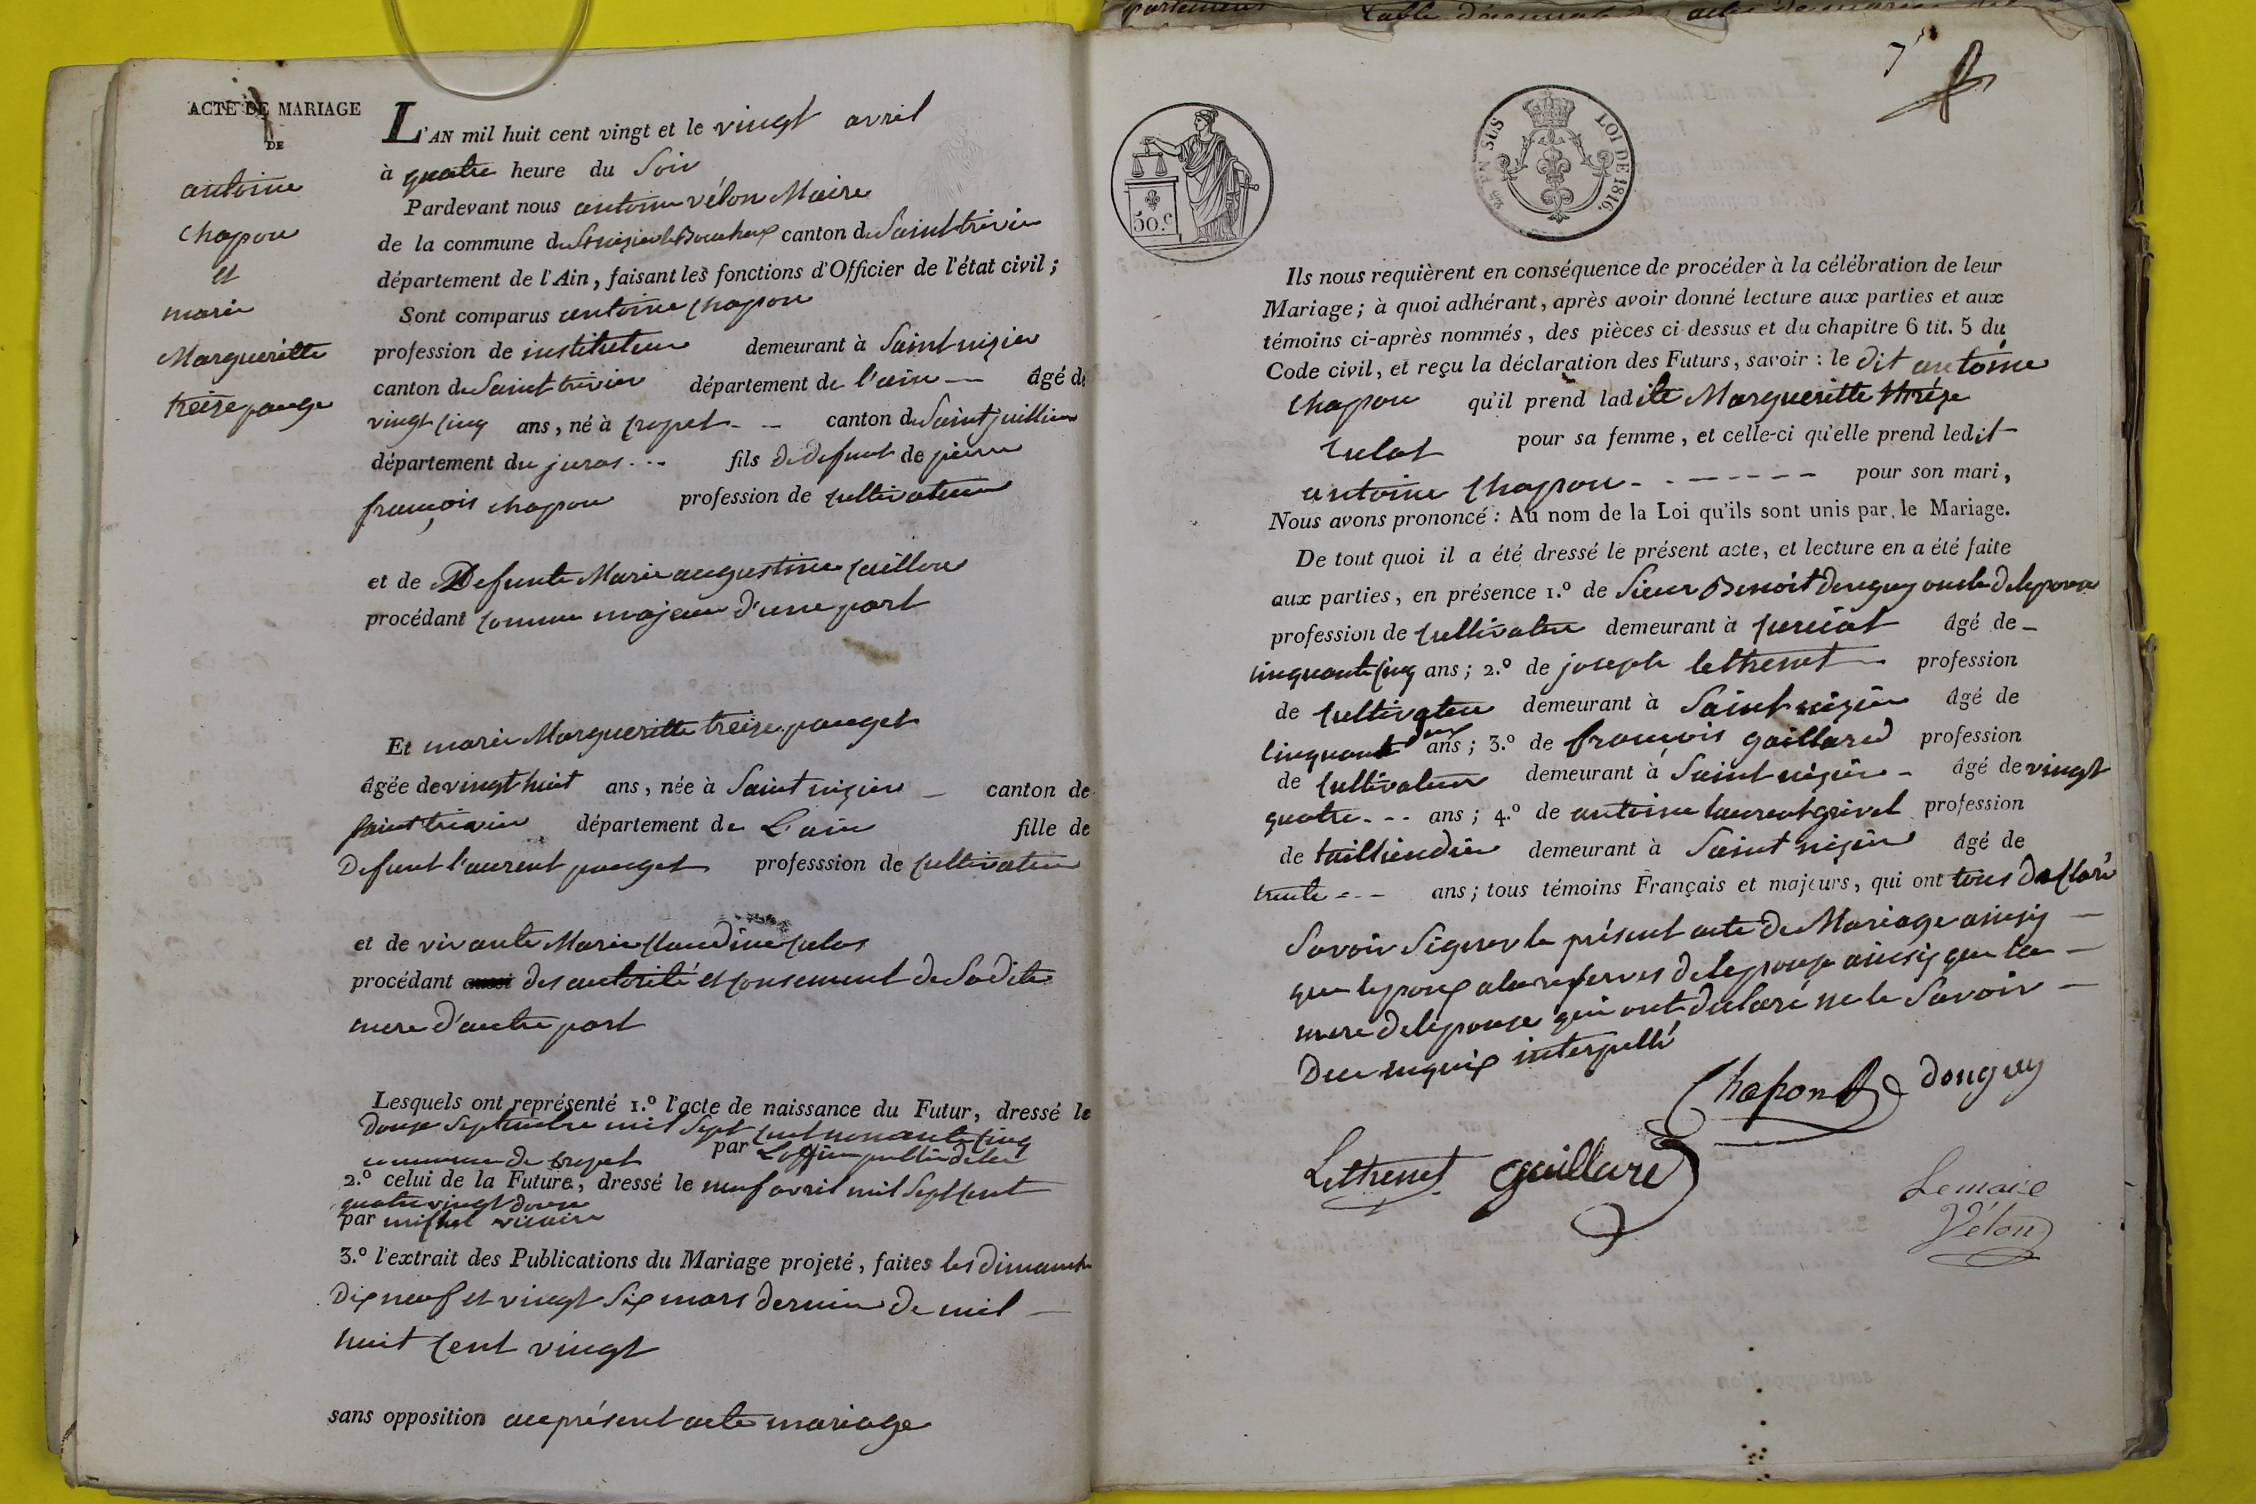 ACTE DE MARIAGE
DE
antoine
chapon
et
marie
Margueritte
treize pauge
L'AN mil huit cent vingt et le vingt avril
à quatre heure du Soir
Pardevant nous antoine vélon Maire
de la commune de St nizier le Bouchoux canton de Saint trivier
département de l'Ain, faisant les fonctions d'Officier de l'état civil;
Sont comparus antoine chapon
profession de instituteur demeurant à Saint nizier
canton de Saint trivier département de l'ain — âgé de
vingt cinq ans, né à cropet - - canton de Saint juillien
département du juras - - - fils de defunt de pierre
françois chapon profession de cultivateur
et de Defunte Marie augustine caillon
procédant comme majeur d'une part
Et marie Margueritte treize pauget
âgée de vingt huit ans, née à Saint nizier — canton de
Saint trivier département de L'ain fille de
Defunt l'aurent pauget professsion de cultivateur
et de vivante Marie claudine culas
procédant aussi des autorité et consement de Sa dite
mere d'autre part
Lesquels ont représenté 1.º l'acte de naissance du Futur, dressé le
douze Septembre mil Sept cent nonante cinq
par L'officier public de la
commune de cropet
2.º celui de la Future, dressé le neuf avril mil Sept cent
quatre vingt douze
par michel vicaire
3.º l'extrait des Publications du Mariage projeté, faites les dimanche
Dix neuf et vingt Six mars dernier de mil —
huit cent vingt
sans opposition au présent acte mariage
7
50.c
LOI DE 1816.
Ils nous requièrent en conséquence de procéder à la célébration de leur
Mariage; à quoi adhérant, après avoir donné lecture aux parties et aux
témoins ci-après nommés, des pièces ci-dessus et du chapitre 6 tit. 5 du
Code civil, et reçu la déclaration des Futurs, savoir: le dit antoine
chapon qu'il prend ladite Margueritte
pour sa femme, et celle-ci qu'elle prend ledit
antoine chapon - - - - - - - pour son mari,
Nous avons prononcé: Au nom de la Loi qu'ils sont unis par le Mariage.
De tout quoi il a été dressé le présent acte, et lecture en a été faite
aux parties, en présence 1.º de Sieur Benoit donguy oncle de lepouse
profession de cultivateur demeurant à curciat âgé de -
cinquante cinq ans; 2.º de joseph lethenet profession
de cultivateur demeurant à Saint nizier âgé de
cinquante deux ans; 3.º de francois gaillard profession
de cultivateur demeurant à Saint nizier - âgé de vingt
quatre - - - ans; 4.º de antoine laurent grivel profession
de taillendier demeurant à Saint nizier âgé de
trente - - - ans; tous témoins Français et majeurs, qui ont tous declaré
Savoir Signer le présent acte de Mariage ainsiy —
que lepoux a la reserves de lepouse ainsiy que la —
mere de lepouse qui ont declaré ne le Savoir —
De ce requis interpellé
Chapon donguy
Lethenet gaillard
Le maire
Vélon